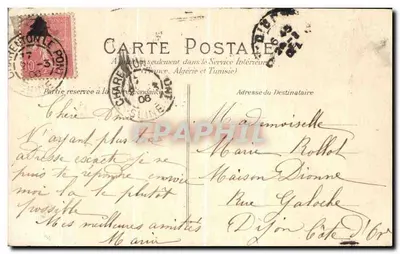 CARTE POSTALE
A utiliser seulement dans le Service Intérieur
(France, Algérie et Tunisie)
Partie réservée à la Correspondance
Adresse du Destinataire
CHARENTON LE PONT
CHARENTON
PONT
SEINE
06
DIJON
Chère Amie
N'ayant plus ton
adresse exacte je ne
puis te répondre envoie
moi la le plutôt
possible
Mes meilleures amitiés
Marie
Mademoiselle
Marie Rollot
Maison Dionne
Rue Galoche
Dijon Côte d'Or
CPAPHIL